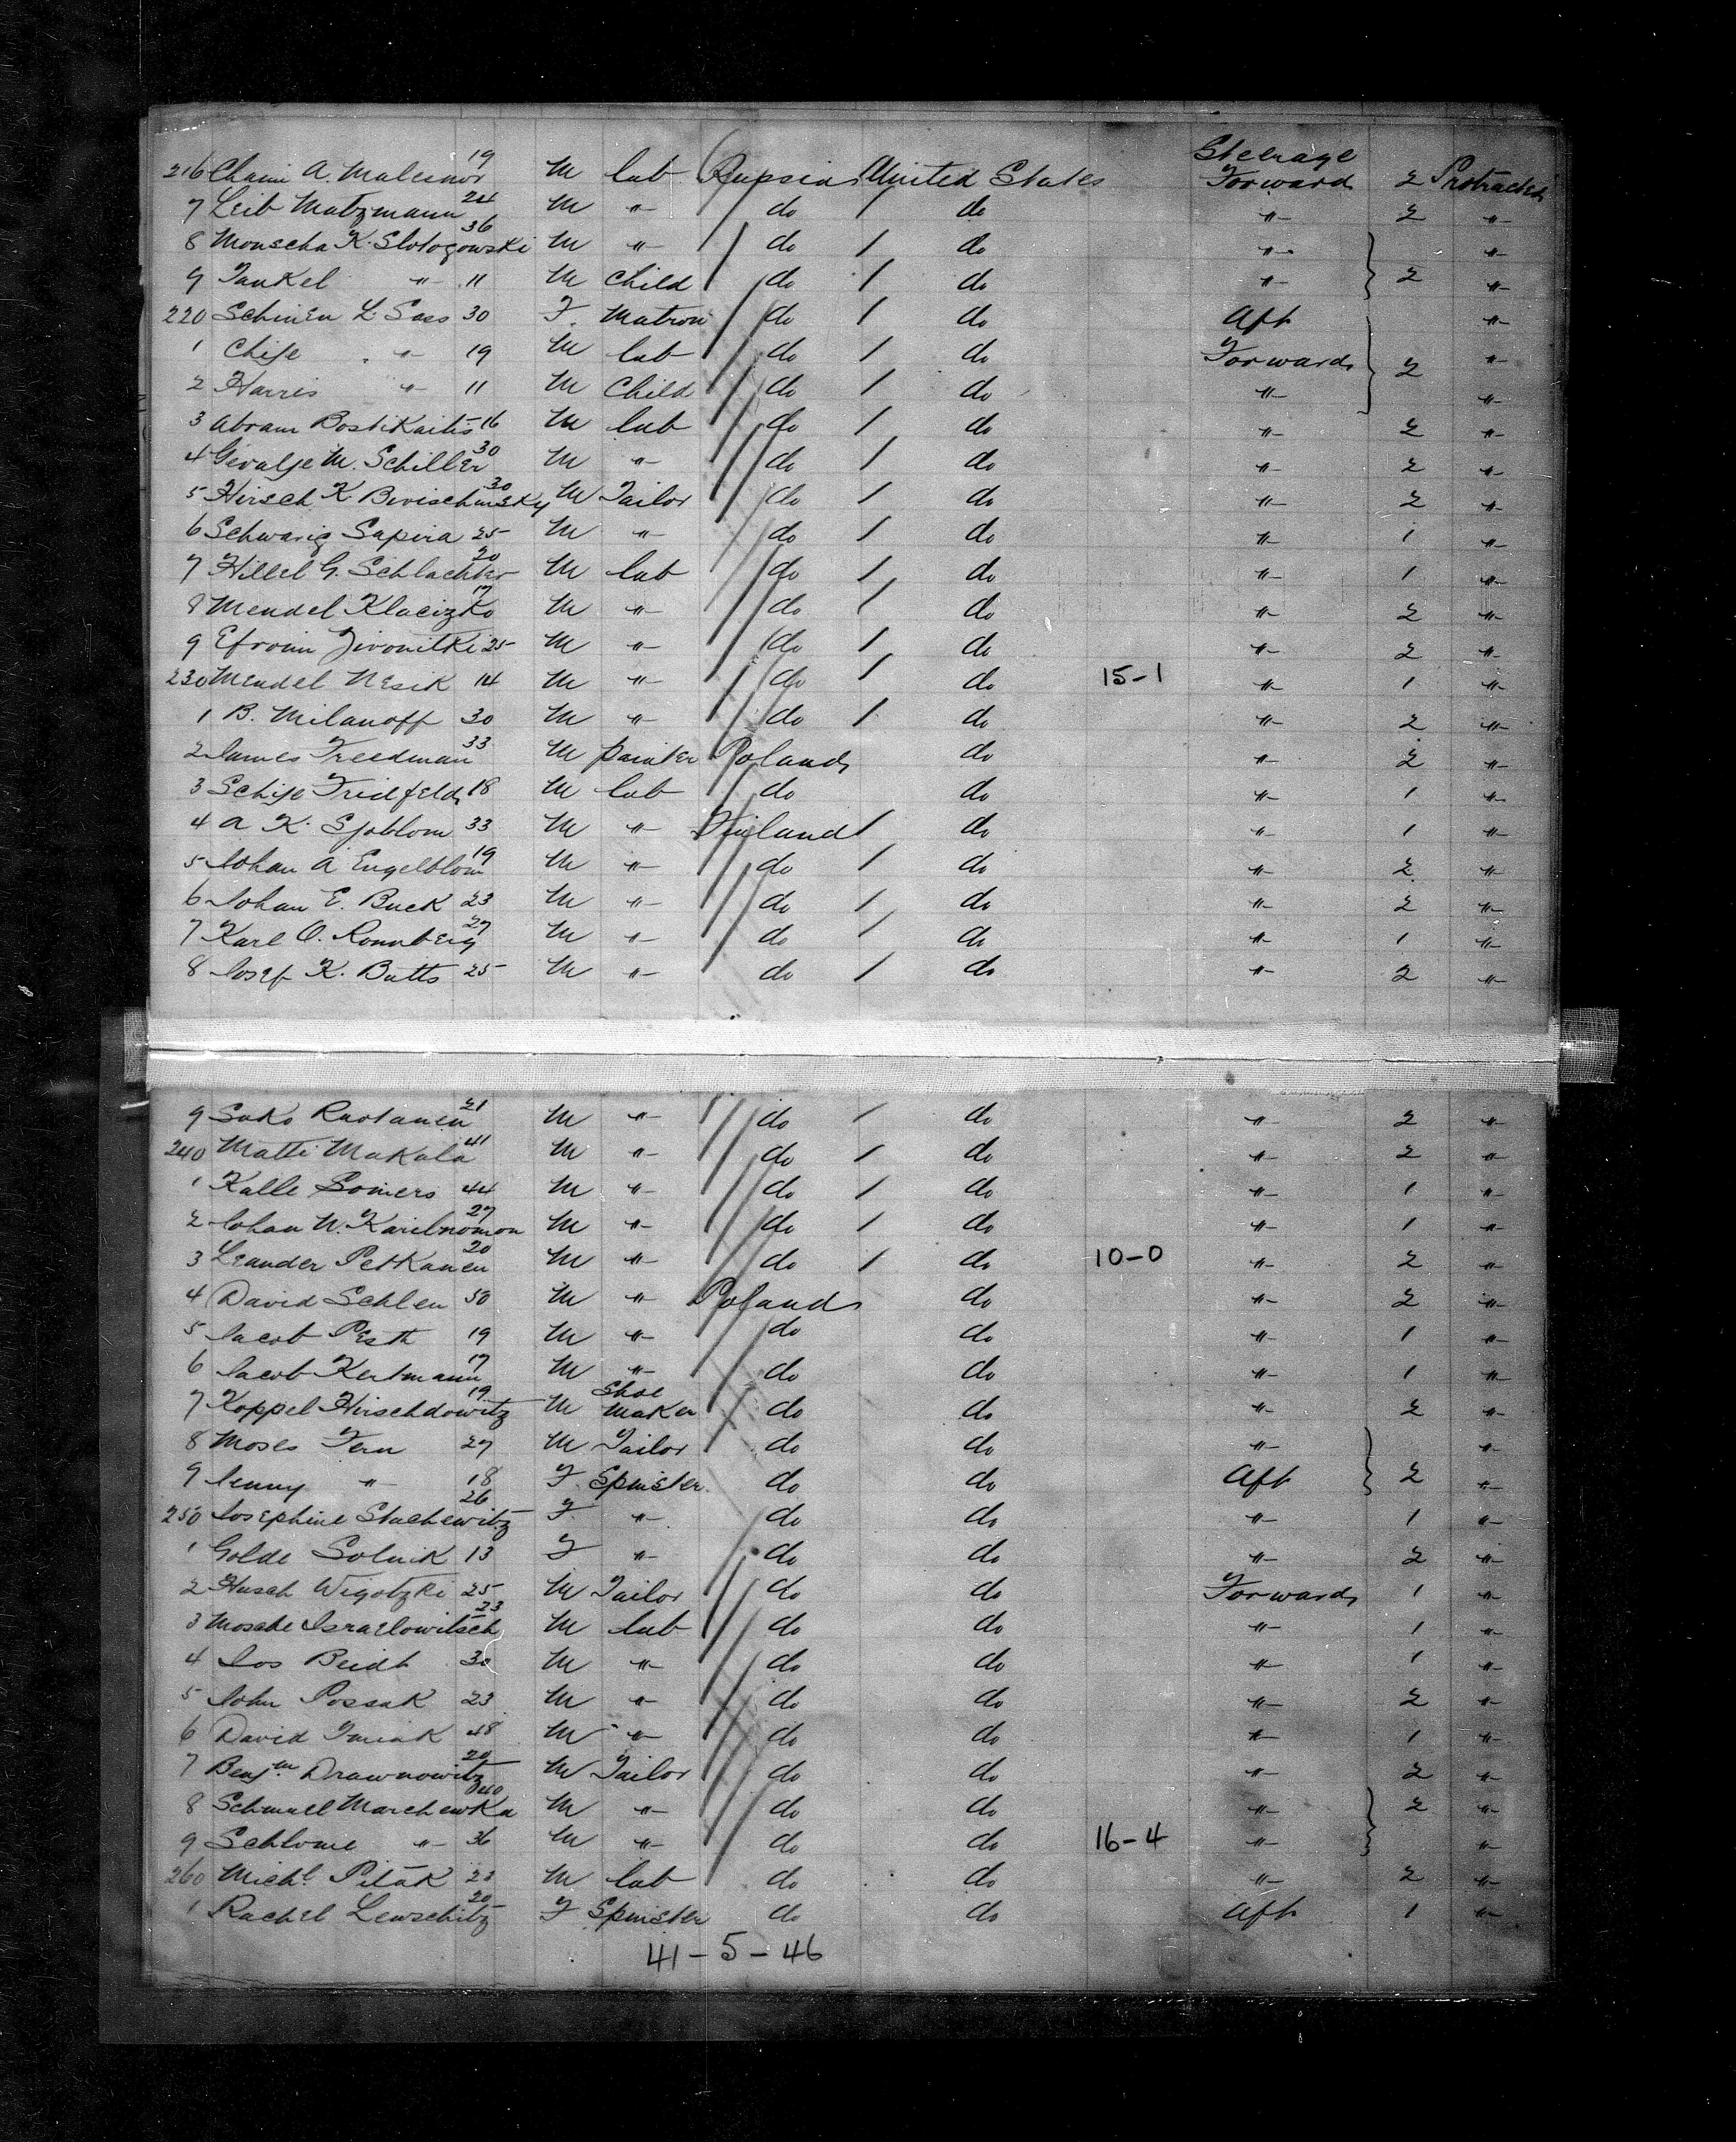 Steerage
216 Chaim A. Malesnor 19 M lab Russia United States Forward 2 Protracted
7 Leib Matzmann 24 M " do do " 2 "
8 Monscha K. Slotogowski 36 M " do do " "
9 Jankel " 11 M Child do do " 2 "
220 Schinen L. Sass 30 F. Matron do do Aft "
1 Chise " 19 M lab do do Forward 2 "
2 Harris " 11 M Child do do " "
3 Abram Bostikaitis 16 M lab do do " 2 "
4 Gevalje M. Schiller 30 M " do do " 2 "
5 Hirsch K Bevischinsky 30 M Tailor do do " 2 "
6 Schwarig Sapira 25 M " do do " 1 "
7 Hillel G. Schlachter 20 M lab do do " 1 "
8 Mendel Klacizko 17 M " do do " 2 "
9 Efroim Jivonitki 25 M " do do " 2 "
230 Mendel Nesik 14 M " do do 15-1 " 1 "
1 B. Milanoff 30 M " do do " 2 "
2 James Freedman 33 M painter Poland do " 2 "
3 Schije Friedfeld 18 M lab do do " 1 "
4 A. K. Sjoblom 33 M " Finland do " 1 "
5 Johan A Engelblom 19 M " do do " 2 "
6 Johan E. Buck 23 M " do do " 2 "
7 Karl O. Ronnberg 27 M " do do " 1 "
8 Josef K. Butts 25 M " do do " 2 "
9 Sako Rautanen 21 M " do do " 2 "
240 Matti Makala 41 M " do do " 2 "
1 Kalle Somers 44 M " do do " 1 "
2 Johan W. Karilnomon 27 M " do do " 1 "
3 Leander Petkanen 20 M " do do 10-0 " 2 "
4 David Schlen 50 M " Poland do " 2 "
5 Jacob Pesth 19 M " do do " 1 "
6 Jacob Kertmann 17 M " do do " 1 "
7 Koppel Hirschdowitz 19 M Shoe Maker do do " 2 "
8 Moses Fern 27 M Tailor do do " "
9 Jenny " 18 F. Spinster do do Aft 2 "
250 Josephine Stachewitz 26 F. " do do " 1 "
1 Golde Solnik 13 F " do do " 2 "
2 Husch Wigotzki 25 M Tailor do do Forward 1 "
3 Mosche Israelowitsch 23 M lab do do " 1 "
4 Jos Beidt 30 M " do do " 1 "
5 John Possak 23 M " do do " 2 "
6 David Imiak 48 M " do do " 1 "
7 Benjm Drawnowitz 20 M Tailor do do " 2 "
8 Schmuel Marchewka 40 M " do do " 2 "
9 Schlome " 36 M " do do 16-4 " "
260 Michl Pitak 23 M lab do do " 2 "
1 Rachel Lewschitz 20 F Spinster do do Aft 1 "
41-5-46